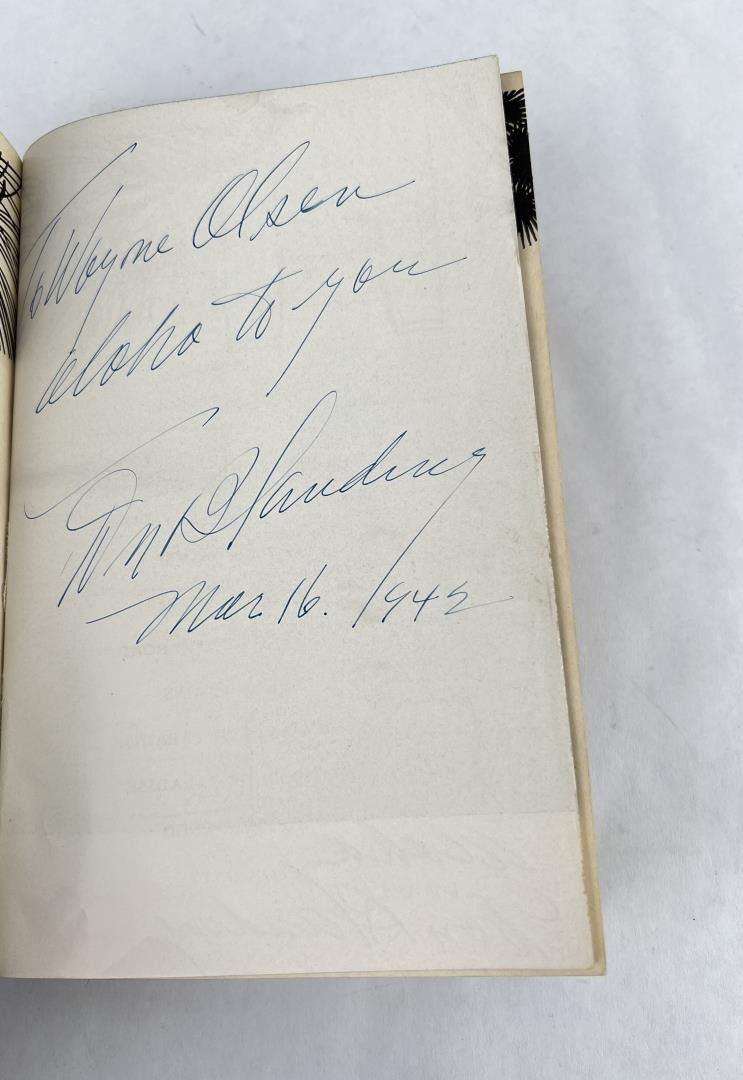 To Wayne Olsen
aloha to you
Don Blanding
Mar 16. 1942